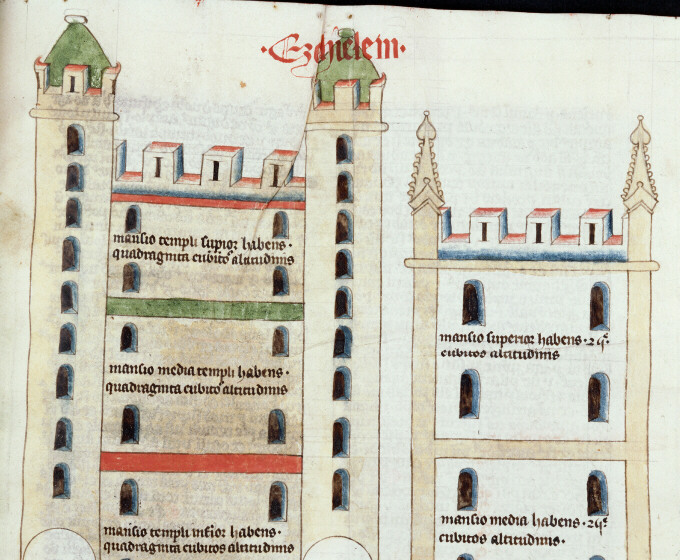 ·Ezchielem·
mansio templi supior habens·
quadraginta cubitos altitudinis
mansio media templi habens·
quadraginta cubitos altitudinis
mansio templi inferior habens·
quadraginta cubitos altitudinis
mansio superior habens·
cubitos altitudinis
mansio media habens·
cubitos altitudinis·